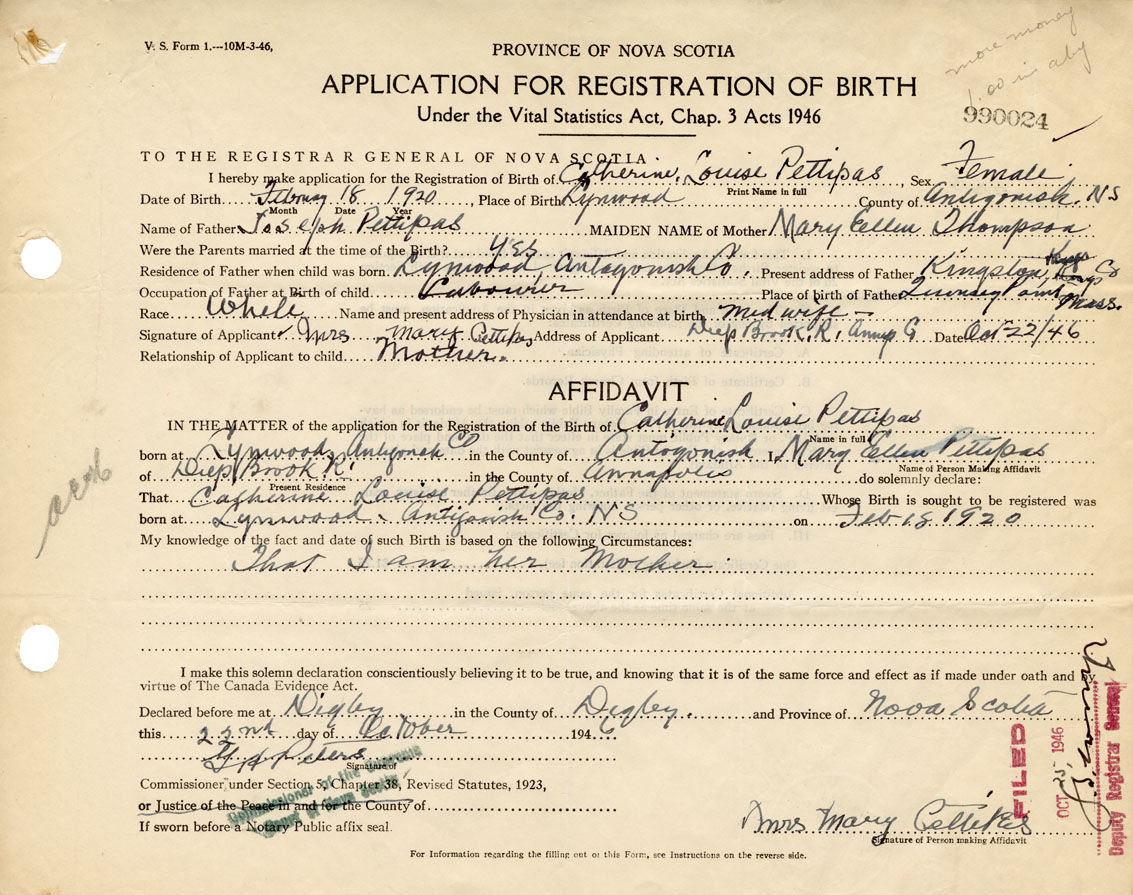 V. S. Form 1.---10M-3-46,
more money
1.00 in aby
PROVINCE OF NOVA SCOTIA
APPLICATION FOR REGISTRATION OF BIRTH
Under the Vital Statistics Act, Chap. 3 Acts 1946
990024
TO THE REGISTRAR GENERAL OF NOVA SCOTIA
I hereby make application for the Registration of Birth of Catherine Louise Pettipas, Sex Female
Print Name in full
Date of Birth February 18 1920, Place of Birth Lynwood County of Antigonish. NS
Month Date Year
Name of Father Joseph Pettipas MAIDEN NAME of Mother Mary Ellen Thompson
Were the Parents married at the time of the Birth? YES
Residence of Father when child was born. Lynwood, Antagonish Co. Present address of Father Kingston, Kings Co
Occupation of Father at Birth of child Labourer Place of birth of Father Point Mass.
Race White Name and present address of Physician in attendance at birth midwife
Signature of Applicant Mrs Mary Pettipas Address of Applicant Deep Brook, R. Annap Co Date Oct 22/46
Relationship of Applicant to child Mother.
AFFIDAVIT
IN THE MATTER of the application for the Registration of the Birth of Catherine Louise Pettipas
Name in full
born at Lynwood, Antigonish Co in the County of Antogonish I, Mary Ellen Pettipas
Name of Person Making Affidavit
of Deep Brook R. in the County of Annapolis do solemnly declare:
Present Residence
That Catherine Louise Pettipas Whose Birth is sought to be registered was
born at Lynwood Antigonish Co. NS on Feb 18 1920
My knowledge of the fact and date of such Birth is based on the following Circumstances:
That I am her Mother
I make this solemn declaration conscientiously believing it to be true, and knowing that it is of the same force and effect as if made under oath and by
virtue of The Canada Evidence Act.
Declared before me at Digby in the County of Digby. and Province of Nova Scotia
this 22nd day of October 1946
Peters
Signature of
Commissioner under Section 5, Chapter 38, Revised Statutes, 1923,
or Justice of the Peace in and for the County of
Commissioner of the Supreme
Court of Nova Scotia
If sworn before a Notary Public affix seal.
Mrs Mary Pettipas
Signature of Person making Affidavit
For Information regarding the filling out of this Form, see Instructions on the reverse side.
FILED
OCT 25 1946
Deputy Registrar General